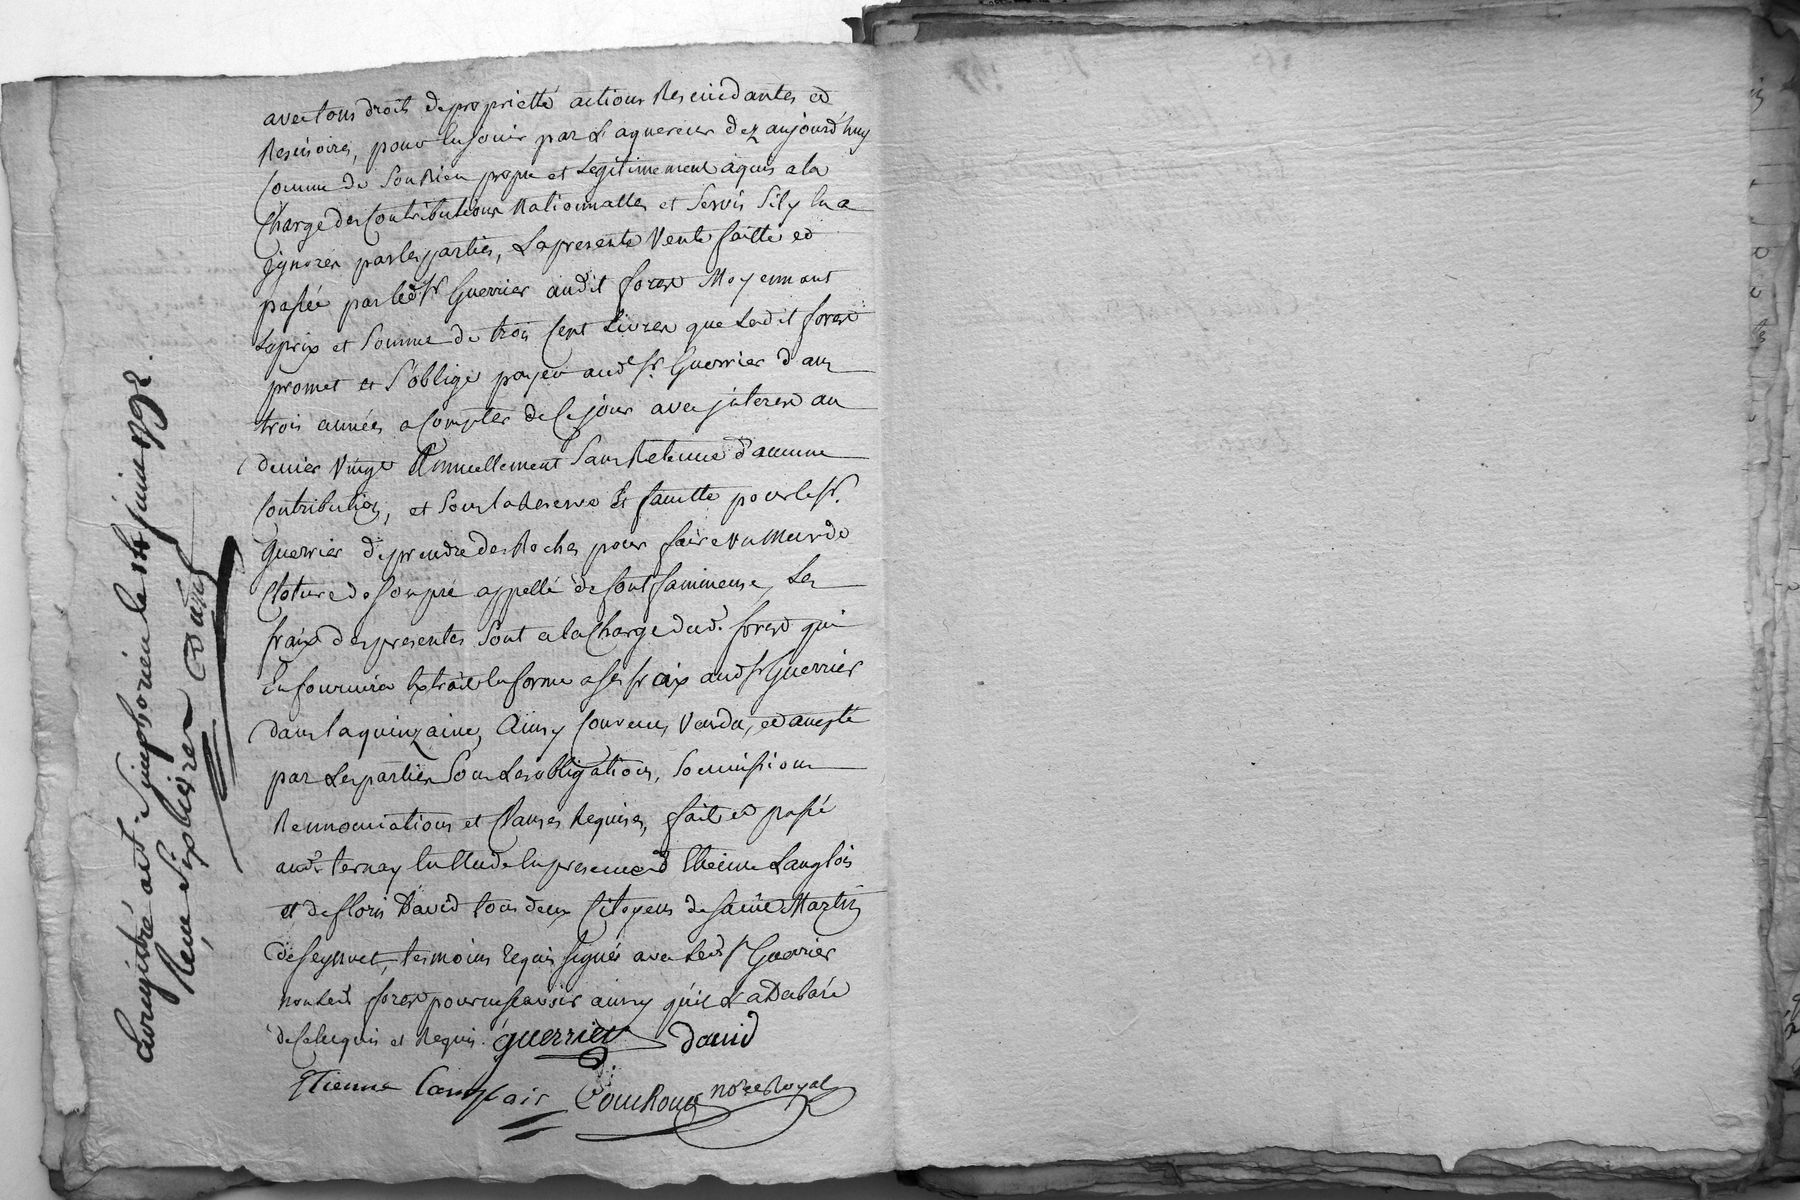 avec tous droits de proprietté actions Rescindantes et
Rescisoires, pour en Jouir par L'aquereur dez aujourd'huy
Comme de Son Bien propre et Legitimement aquis a la
Charge des Contributions Nationnalles et Servis S'il y en a
ignorés par les parties, La presente Vente faitte et
passée par led. Sr. Guerrier audit forest Moyennant
Le prix et Somme de trois Cent Livres que Ledit forest
promet et S'oblige payer aud. Sr. Guerrier dans
trois années a Compter de Ce jour avec jnterest au
denier Vingt Annuellement Sans Retenue d'aucune
Contribution, et Sous la Reserve Et faculté pour le Sr.
Guerrier de prendre des Roches pour faire un Mur de
Cloture de Son pré appellé de font Les
fraix des presentes Sont a la Charge dud. forest qui
En fournira Extrait en forme a Ses fraix aud. Sr. Guerrier
dans la quinzaine, Ainsy Convenu, Vendu, et accepté
par Les parties Sous Les obligations, Soumissions
Rennonciations et Clauses Requises, fait et passé
aud. ternay Etude En presence d'Etienne Langlois
et de floris David tous deux Citoyens de Saint Martin
de Seyssuel, temoins Requis Signés avec Led. Sr. Guerrier
non Led. forest pour ne Scavoir ainsy qu'il L'a Déclaré
de Ce Enquis et Requis. guerrier david
Etienne Langlois Not.re Royal
Enregistré a St. Simphorien le 14 juin 1792.
Reçu